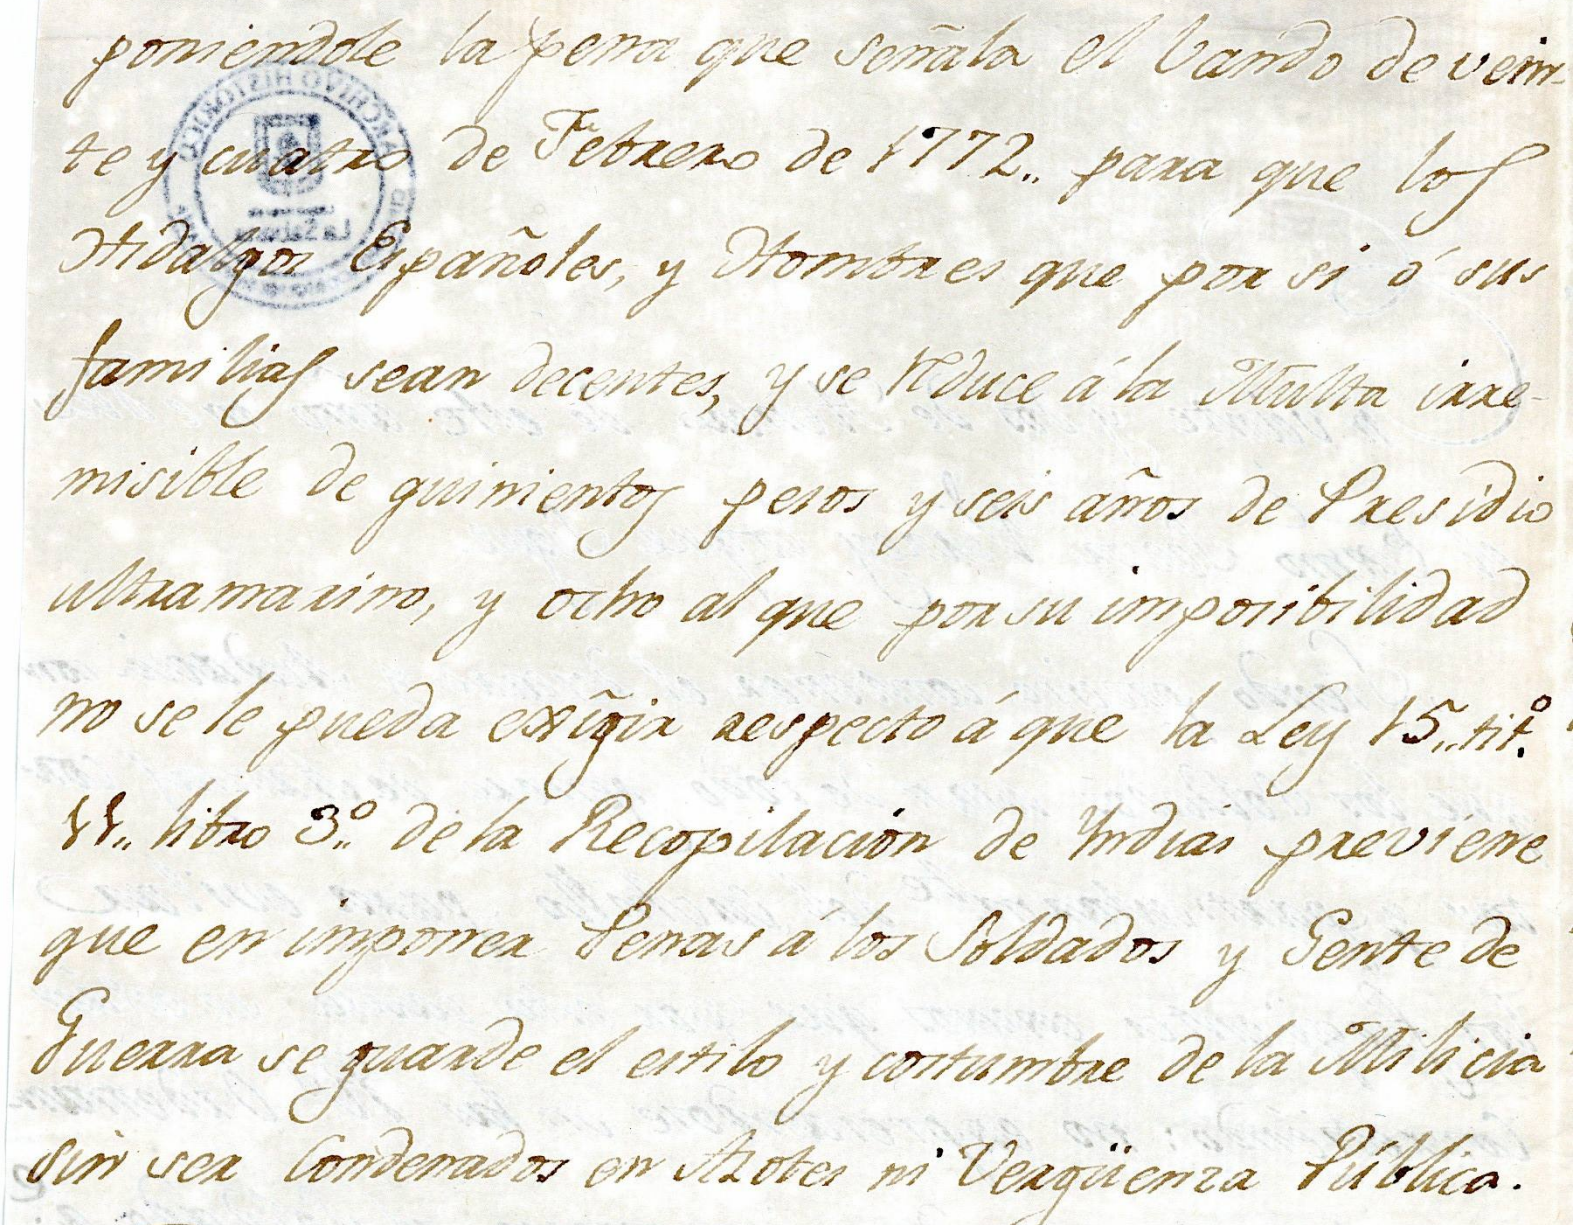 poniendole la pena que señala el Vando de vein-
te y cuatro de Febrero de 1772„ para que los
Hidalgos Españoles, y Hombres que por si ó sus
familias sean decentes, y se reduce á la Multa irre-
misible de quinientos pesos y seis años de Presidio
ultramarino, y ocho al que por su imposibilidad
no se le pueda exigir respecto á que la Ley 15„ titº.
11„ libro 3º„ de la Recopilación de Yndias previene
que en imponer Penas á los Soldados y Gente de
Guerra se guarde el estilo y costumbre de la Milicia
sin ser Condenados en Azotes ni Vergüenza Pública.
ARCHIVO HISTORICO